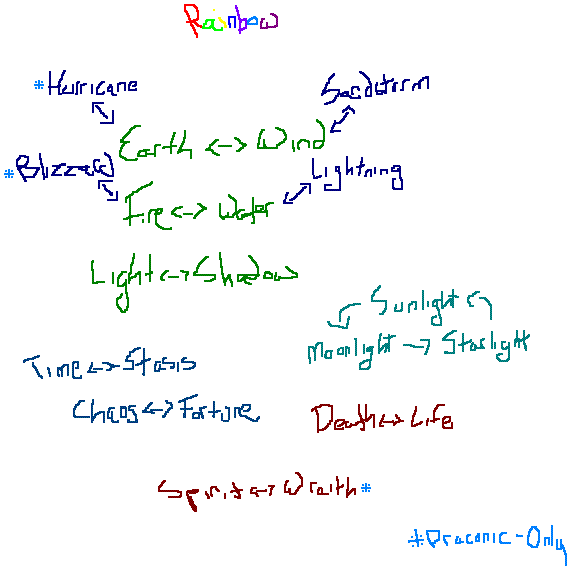 Rainbow
*Hurricane
Sandstorm
Earth <-> Wind
*Blizzard
Lightning
Fire <-> Water
Light <-> Shadow
Sunlight
Moonlight -> Starlight
Time <-> Stasis
Chaos <-> Fortune
Death <-> Life
Spirit <-> Wraith*
*Draconic-Only